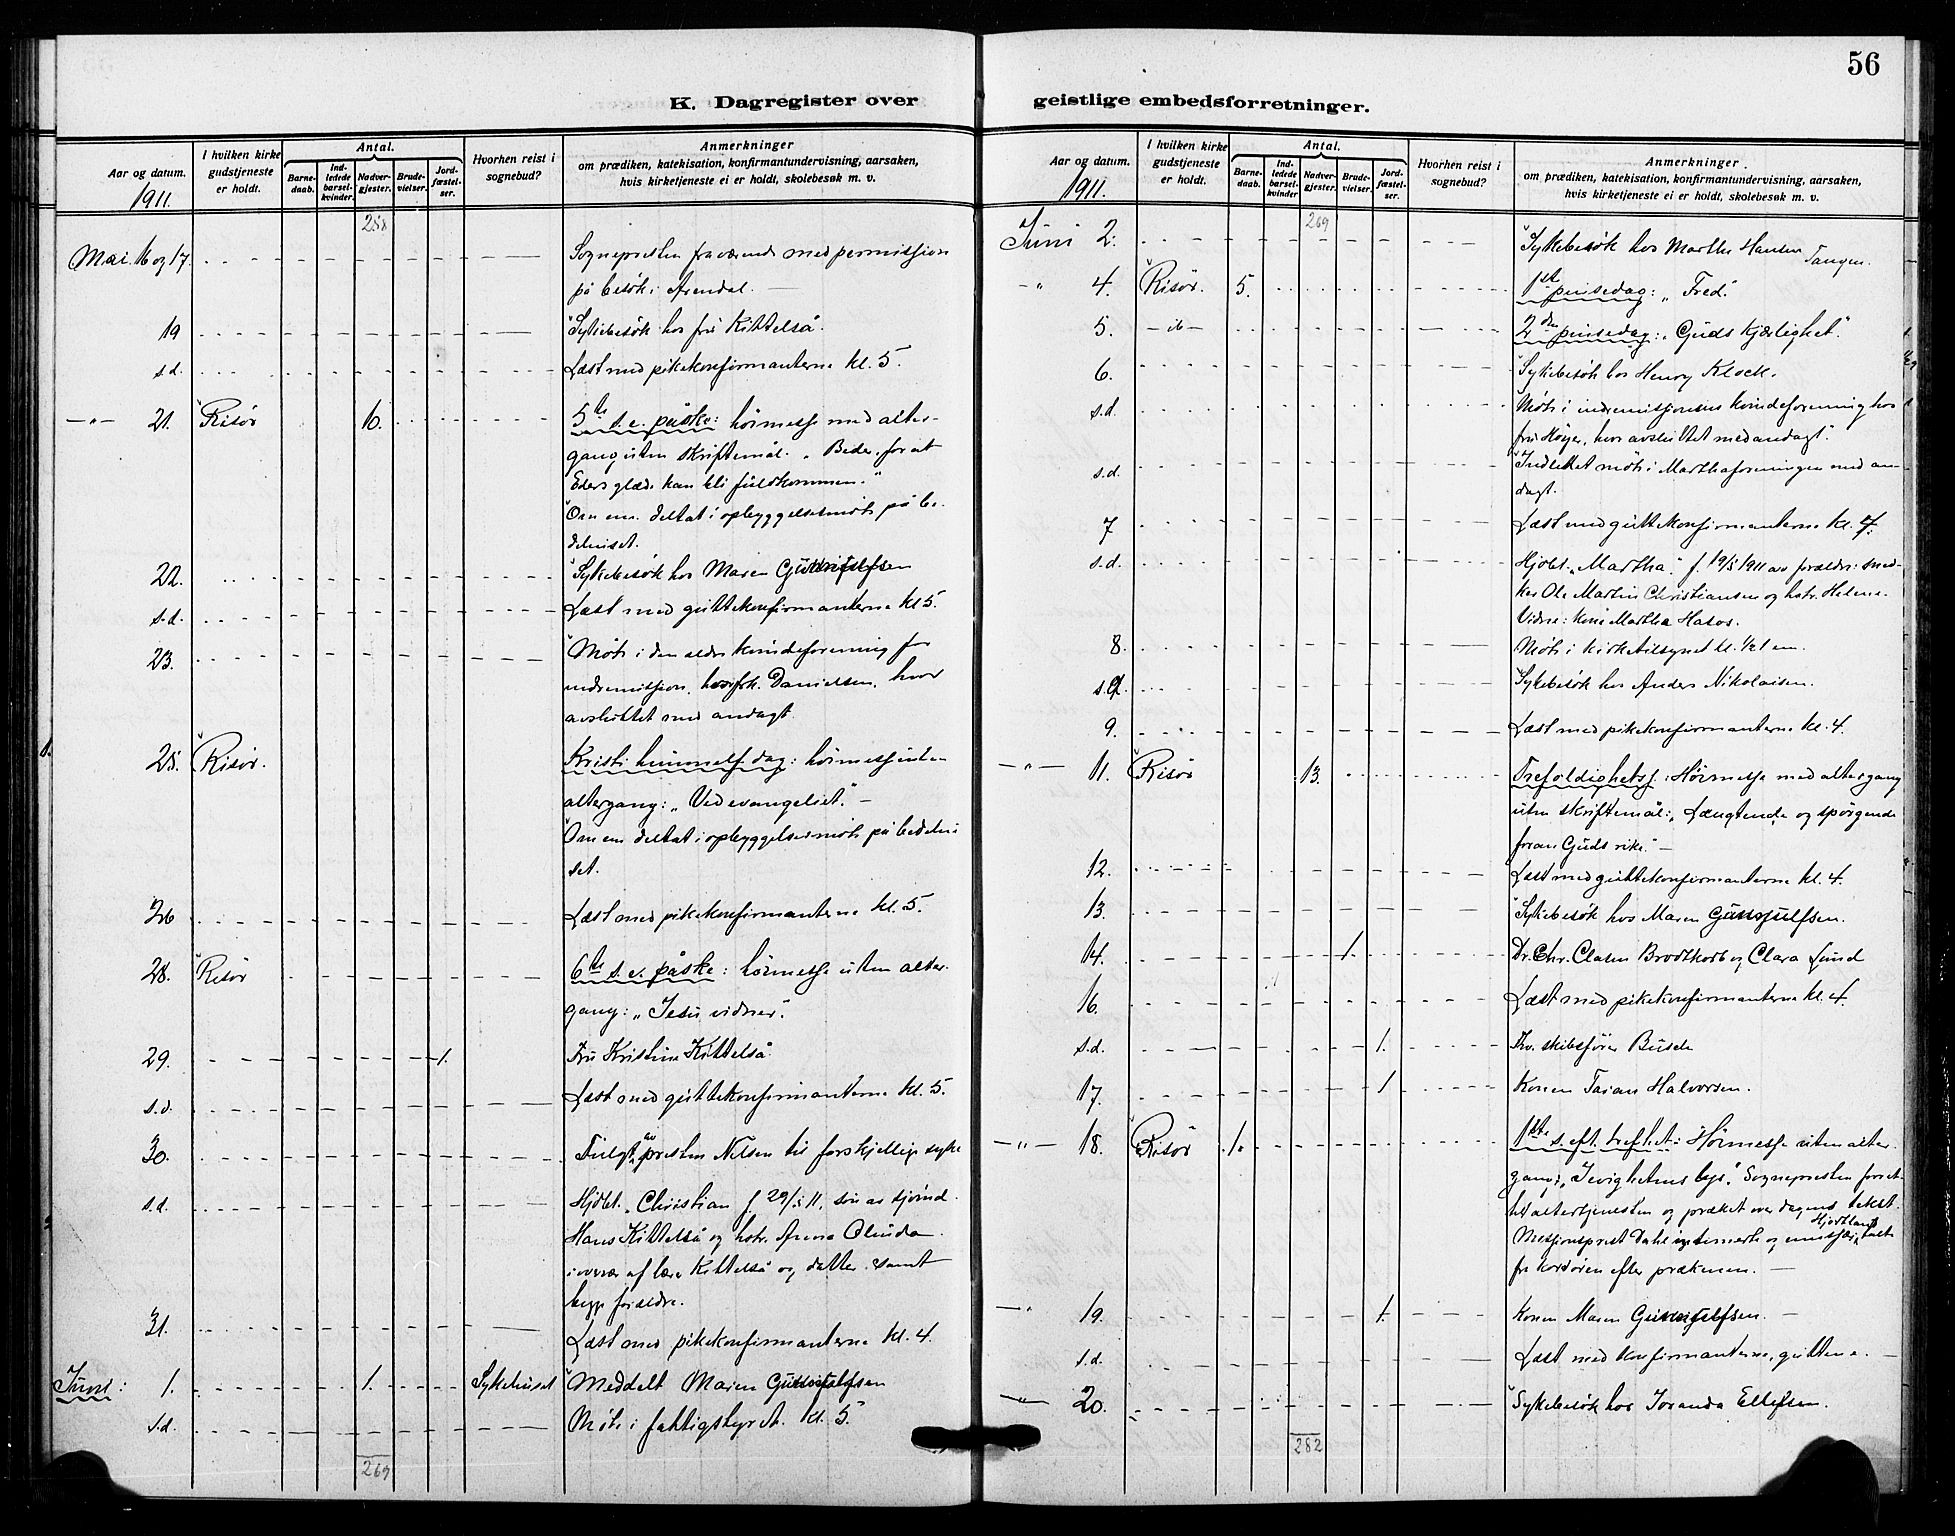 56
K. Dagregister over
geistlige embedsforretninger.
Aar og datum.
1911.
I hvilken kirke gudstjeneste er holdt.
Antal.
Barne-daab.
Ind-ledede barsel-kvinder.
Nadver-gjester.
Brude-vielser.
Jord-fæstel-ser.
Hvorhen reist i sognebud?
Anmerkninger
om prædiken, katekisation, konfirmantundervisning, aarsaken,
hvis kirketjeneste ei er holdt, skolebesøk m. v.
258
Mai. 16 og 17. Sognepresten fraværende med permission
på besøk i Arendal.
19 Sykebesøk hos fru Kittelså.
s.d. Læst med pikekonfirmanterne kl. 5.
-"- 21. Risör 10. 5te s. e. påske: høimesse med alter-
gang uten skriftemål. "Beder, for at
Eders glæde kan bli fuldkommen."
Om em. deltat i opbyggelsesmöte på be-
dehuset.
22. Sykebesøk hos Maren Gunnulfsen
s.d. Læst med guttekonfirmanterne kl 5.
23. Möte i den ældre kvindeforening for
indremission, hos frk. Danielsen, hvor
avsluttet med andagt.
25. Risör. Kristi himmelf. dag: høimesse uten
altergang: "Ved evangeliet." —
Om em deltat i opbyggelsesmöte på bedehu
set.
26 Læst med pikekonfirmanterne kl. 5.
28. Risör 6te s. e. påske: høimesse uten alter-
gang: "Jesu vidner."
29. 1. Fru Kristine Kittelså
s.d. Læst med guttekonfirmanterne kl. 5.
30. Fulgt av presten Nilsen til forskjellige syke
s.d. Hjdbt. Christian f. 29/5 11, søn av
Hans Kittelså og hstr. Anna Olinda
Kittelså og datter samt
begge forældre.
31. Læst med pikekonfirmanterne kl. 4.
Juni: 1. 1. Sykehuset Meddelt Maren Gunnulfsen
s.d. Möte i fattigstyret. kl. 5
269
Aar og datum.
1911.
I hvilken kirke gudstjeneste er holdt.
Antal.
Barne-daab.
Ind-ledede barsel-kvinder
Nadver-gjester.
Brude-vielser.
Jord-fæstel-ser.
Hvorhen reist i sognebud?
Anmerkninger
om prædiken, katekisation, konfirmantundervisning, aarsaken,
hvis kirketjeneste ei er holdt, skolebesøk m. v.
269
Juni 2. Sykebesøk hos Marthe Hansen Tangen.
-"- 4. Risör. 5. 1ste pinsedag: "Fred."
5. -ib- 2den pinsedag: "Guds Kjærlighet."
6. Sykebesök hos Henry Klock.
s.d. Möte i indremissionens kvindeforening hos
fru Höyer, hvor avsluttet med andagt.
s.d. Indledet möte i Marthaforeningen med an-
dagt.
7 Læst med guttekonfirmanterne kl. 4.
s.d. Hjdbt. "Martha." f. 19/5 1911 av forældre: sned-
ker Ole Martin Christiansen og hstr. Helene.
Vidne: kone Martha
8. Möte i kirketilsynet kl. 1/2 1 em.
s.d. Sykebesøk hos Anders Nikolaisen.
9. Læst med pikekonfirmanterne kl. 4.
-"- 11. Risör 13. Trefoldighetsf.: Höimesse med altergang
uten skriftemål: "Længtende og spörgende
foran Guds rike." —
12. Læst med guttekonfirmanterne kl. 4.
13. Sykebesök hos Maren Gunnulfsen.
14. 1. Dr. Chr. Clasen Brodtkorb og Clara Lund
16. Læst med pikekonfirmanterne kl. 4.
s.d. 1. Fhv. skibsfører Busch
17. 1 Konen Taran Halvorsen.
-"- 18. Risör 1. 1ste s. eft. trefhet: Höimesse uten alter-
gang: "I evighetens lys." Sognepresten forret-
tet altertjenesten og præket over dagens tekst.
Missionsprest Dahl og Hjortland talte
fra kordøren efter prækenen. —
-"- 19. 1. Konen Maren Gunnulfsen. —
s.d. Læst med konfirmanterne, guttene. —
-"- 20. Sykebesök hos Ellefsen.
282